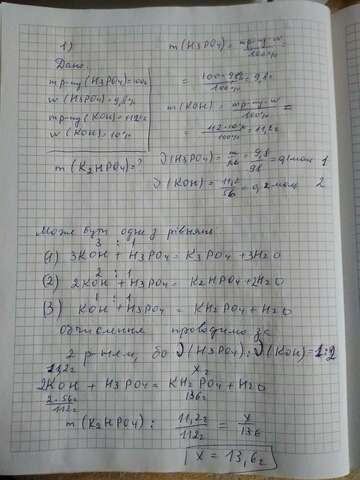 1)
Дано:
m р-ну (H3PO4) = 100г
w (H3PO4) = 9,8%
m р-ну (KOH) = 112г
w (KOH) = 10%
m (K2HPO4) = ?
m (H3PO4) = mр-ну·w / 100% =
= 100·9,8% / 100% = 9,8г
m (KOH) = mр-ну·w / 100% =
= 112·10% / 100% = 11,2г
ν (H3PO4) = m / M = 9,8 / 98 = 0,1моль 1
ν (KOH) = 11,2 / 56 = 0,2моль 2
Може бути одне з рівнянь
3 : 1
(1) 3KOH + H3PO4 = K3PO4 + 3H2O
2 : 1
(2) 2KOH + H3PO4 = K2HPO4 + 2H2O
1 : 1
(3) KOH + H3PO4 = KH2PO4 + H2O
Обчислення проводимо за
2 р-ням, бо ν (H3PO4) : ν (KOH) = 1:2
11,2г x г
2KOH + H3PO4 = KH2PO4 + H2O
2·56г 136г
112г
m (K2HPO4) : 11,2г / 112г = x / 136
x = 13,6г